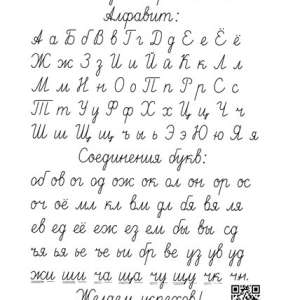 Алфавит:
А а Б б В в Г г Д д Е е Ё ё
Ж ж З з И и Й й К к Л л
М м Н н О о П п Р р С с
Т т У у Ф ф Х х Ц ц Ч ч
Ш ш Щ щ ъ ы ь Э э Ю ю Я я
Соединения букв:
об ов ог од ож ок ол он ор ос
оч оё мл кл вм дл бя вя ля
ев ед её еж ез ем бы вы сд
ъя ья ье че ьи бр ве уз ув уд
жи ши ча ща чу щу чк чн.
Желаем успехов!